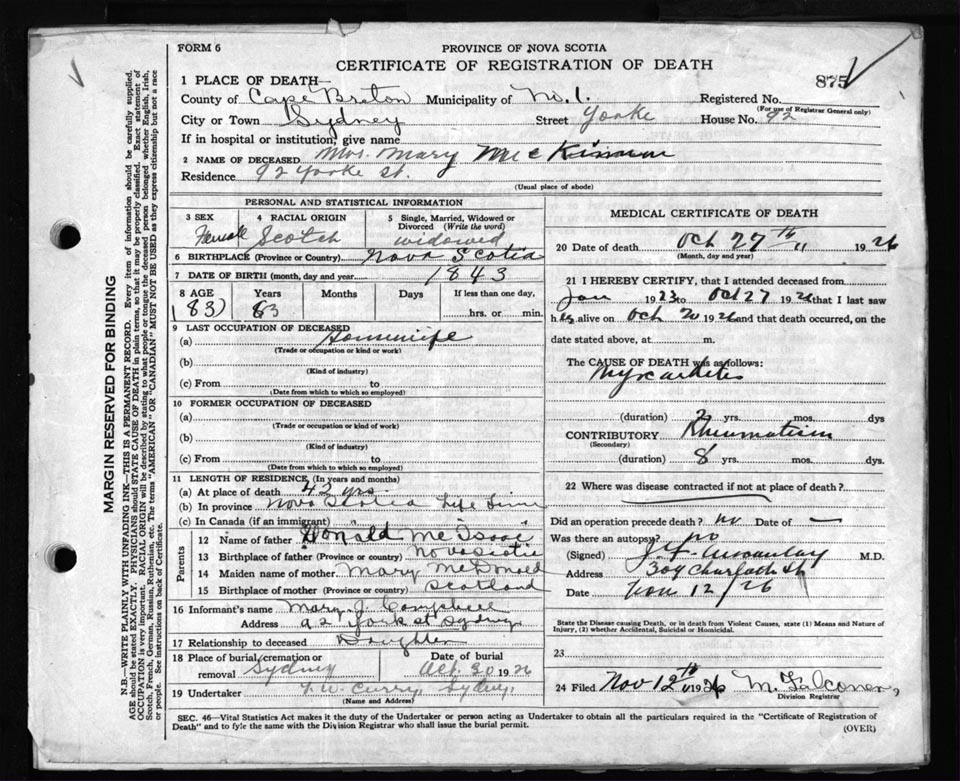 FORM 6
PROVINCE OF NOVA SCOTIA
CERTIFICATE OF REGISTRATION OF DEATH
875
1 PLACE OF DEATH—
County of Cape Breton Municipality of No. 1. Registered No.
(For use of Registrar General only)
City or Town Sydney Street Yorke House No. 92
If in hospital or institution, give name
2 NAME OF DECEASED Mrs. Mary McKinnon
Residence 92 Yorke St.
(Usual place of abode)
PERSONAL AND STATISTICAL INFORMATION
3 SEX Female
4 RACIAL ORIGIN Scotch
5 Single, Married, Widowed or Divorced (Write the word) widowed
6 BIRTHPLACE (Province or Country) Nova Scotia
7 DATE OF BIRTH (month, day and year) 1843
8 AGE Years Months Days If less than one day,
(83) 83 hrs. or min.
9 LAST OCCUPATION OF DECEASED
(a) Housewife
(Trade or occupation or kind or work)
(b)
(Kind of industry)
(c) From to
(Date from which to which so employed)
10 FORMER OCCUPATION OF DECEASED
(a)
(Trade or occupation or kind of work)
(b)
(Kind of industry)
(c) From to
(Date from which to which so employed)
11 LENGTH OF RESIDENCE (In years and months)
(a) At place of death 42 yrs.
(b) In province Nova Scotia Life Time
(c) In Canada (if an immigrant)
Parents
12 Name of father Donald
13 Birthplace of father (Province or country) Nova Scotia
14 Maiden name of mother Mary
15 Birthplace of mother (Province or country) Scotland
16 Informant's name Mary J. Campbell
Address 92 York st Sydney
17 Relationship to deceased Daughter
18 Place of burial, cremation or removal Sydney
Date of burial Oct. 30 1926
19 Undertaker Curry, Sydney,
(Name and Address)
MEDICAL CERTIFICATE OF DEATH
20 Date of death Oct 27th 1926
(Month, day and year)
21 I HEREBY CERTIFY, that I attended deceased from
Jan 1923 to Oct 27 1926 that I last saw
her alive on Oct 20 1926 and that death occurred, on the
date stated above, at m.
The CAUSE OF DEATH was as follows:
Myocarditis
(duration) 2 yrs. mos. dys
CONTRIBUTORY Rheumatism
(Secondary)
(duration) 8 yrs. mos. dys
22 Where was disease contracted if not at place of death?
Did an operation precede death? no Date of —
Was there an autopsy? no
(Signed) M.D.
Address 309 Charlotte St
Date Nov 12/26
State the Disease causing Death, or in death from Violent Causes, state (1) Means and Nature of
Injury, (2) whether Accidental, Suicidal or Homicidal.
23
24 Filed Nov 12th 1926 M. Falconer,
Division Registrar
SEC. 46—Vital Statistics Act makes it the duty of the Undertaker or person acting as Undertaker to obtain all the particulars required in the "Certificate of Registration of
Death" and to fyle the same with the Division Registrar who shall issue the burial permit.
(OVER)
MARGIN RESERVED FOR BINDING
N.B.—WRITE PLAINLY WITH UNFADING INK—THIS IS A PERMANENT RECORD. Every item of information should be carefully supplied.
AGE should be stated EXACTLY. PHYSICIANS should STATE CAUSE OF DEATH in plain terms, so that it may be properly classified. Exact statement of
OCCUPATION is very important. RACIAL ORIGIN will be described by stating to what people or tongue the deceased person belonged whether English, Irish,
Scotch, French, German, Russian, Ruthenian, etc. The terms "AMERICAN" OR "CANADIAN" MUST NOT BE USED as they express citizenship but not a race
or people. See instructions on back of Certificate.